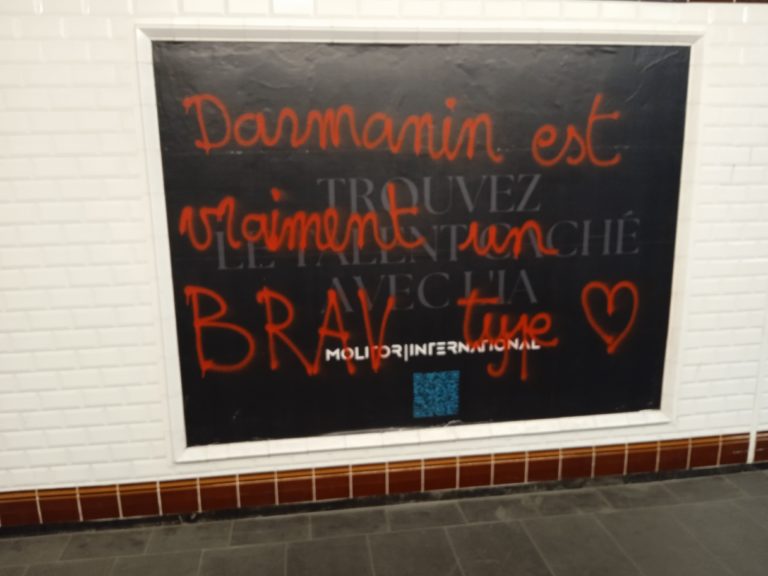 Darmanin est
TROUVEZ
vraiment un
LE TALENT CACHÉ
AVEC L'IA
BRAV type ♡
MOLITOR|INTERNATIONAL